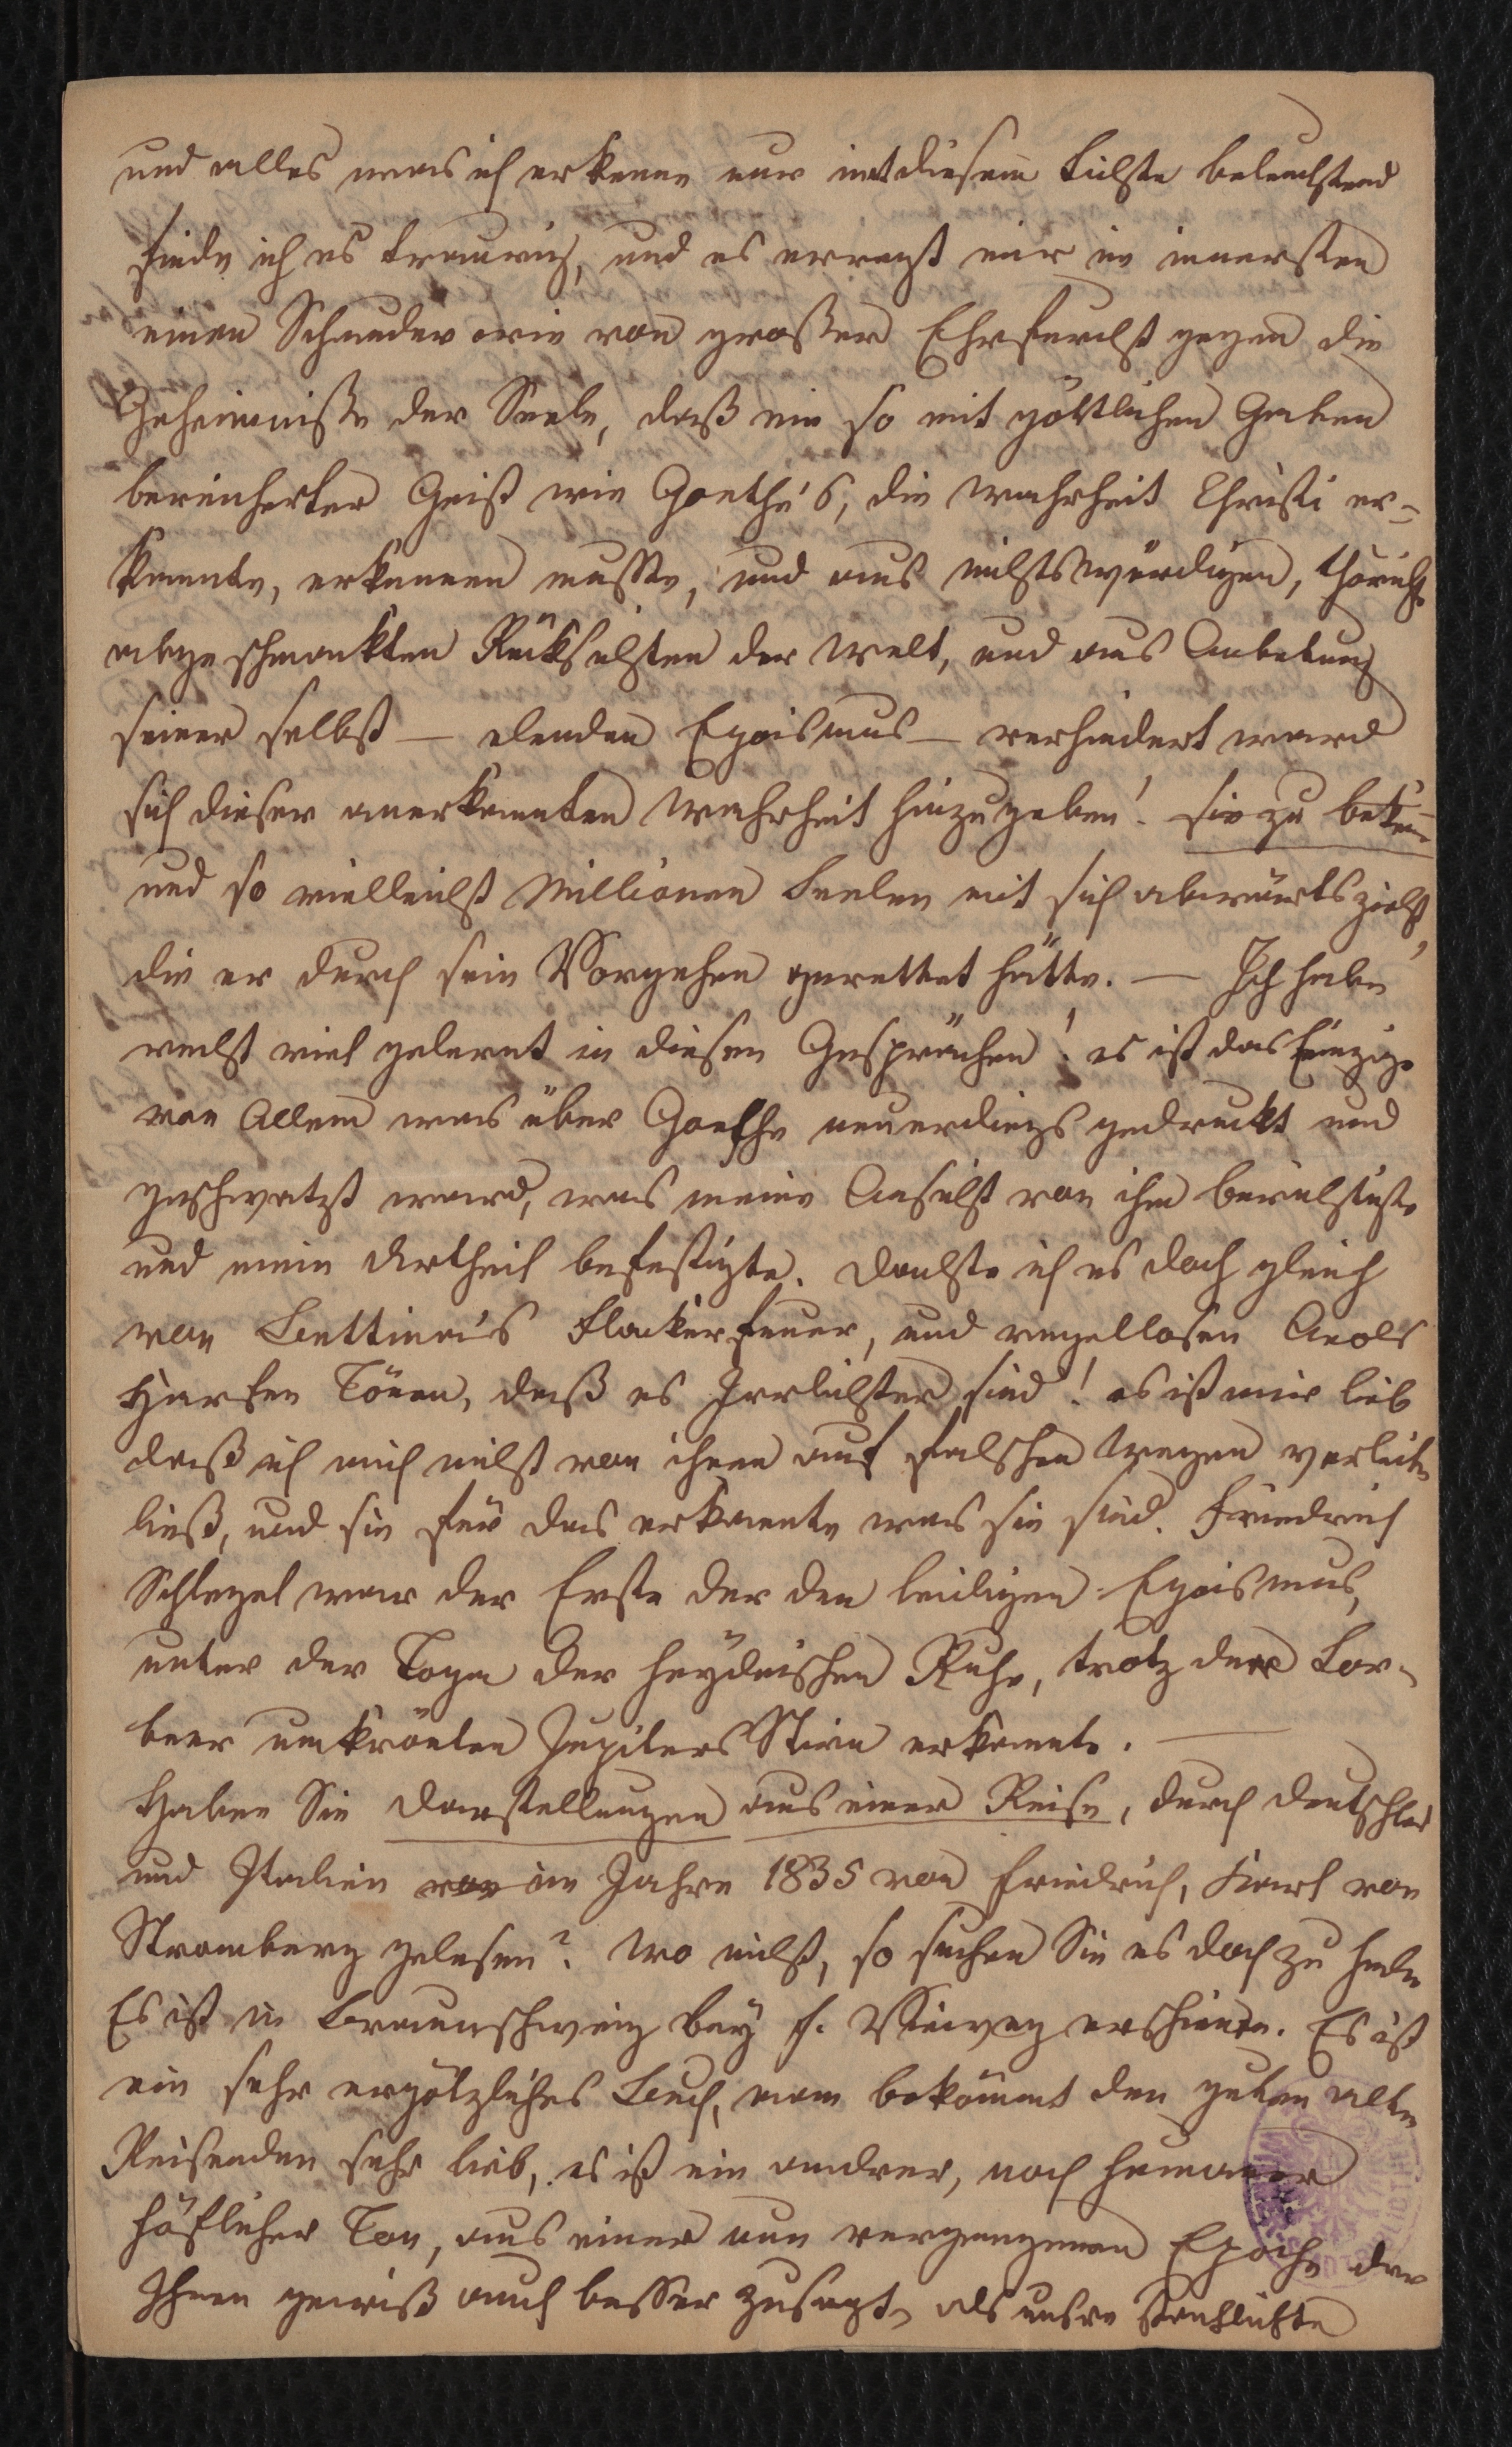 und alles was ich erkenne nur mit diesem Lichte beleuchtend
finde ich es traurig, und es erregt mir im innersten
einen Schauder wie von großer Ehrfurcht gegen die
Geheimniße der Seele, daß ein so mit göttlichen Gaben
bereicherter Geist wie Goethe's, die Wahrheit Christi er=
kannte, erkennen musste, und aus nichtswürdigen, thöricht
abgeschmackten Rücksichten der Welt, und aus Anbetung
seiner selbst — elenden Egoismus — verhindert ward
sich dieser anerkannten Wahrheit hinzugeben! sie zu beken̄en
und so vielleicht Millionen Seelen mit sich abwärts zieht,
die er durch sein Vorgehen gerettet hätte. — Ich habe
recht viel gelernt in diesen Gesprächen! es ist das Einzige
von Allem was über Goethe neuerdings gedruckt und
geschwatzt ward, was meine Ansicht von ihm berichtigte
und mein Urtheil befestigte. Dachte ich es doch gleich
von Bettina's Flackerfeuer, und regellosen Aeols
Harfen Tönen, daß es Irrlichter sind! es ist mir lieb
daß ich mich nicht von ihnen auf falschen Wegen verleiten
ließ, und sie für das erkannte was sie sind. Friedrich
Schlegel war der Erste der den leidigen Egoismus,
unter der Toga der heydnischen Ruhe, trotz der Lor=
beer umkrönten Jupiters Stirn erkannte. —
Haben Sie Darstellungen aus einer Reise, durch Deutschland
und Italien von im Jahre 1835 von Friedrich, Karl von
Strombeck gelesen? Wo nicht, so suchen Sie es doch zu haben
Es ist in Braunschweig bey F. Vieweg erschienen. Es ist
ein sehr ergötzliches Buch, man bekömmt den guten alten
Reisenden sehr lieb, es ist ein andrer, noch humaner
höflicher Ton, aus einer nun vergangenen Epoche der
Ihnen gewiß auch besser zusagt, als unsre stachlichte